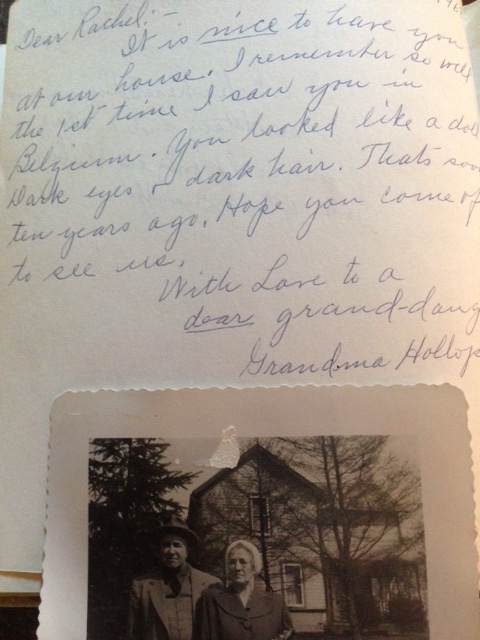 Dear Rachel:-
It is nice to have you
at our house. I remember so well
the 1st time I saw you in
Belgium. You looked like a doll
Dark eyes & dark hair. Thats soon
ten years ago. Hope you come of
to see us.
With Love to a
dear grand-daug
Grandma Hollop